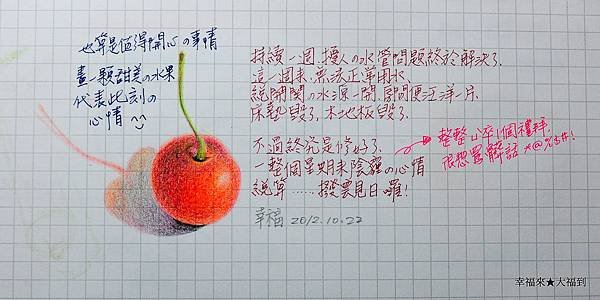 也算是值得開心の事情
畫一顆甜美の水果
代表此刻の
心情
持續一週,擾人の水管問題終於解決了.
這一週來,無法正常用水.
總開關の水源一開,房間便汪洋一片.
床墊毀了,木地板毀了.
不過終究是修好了.
一整個星期來陰霾の心情
總算……撥雲見日囉!
幸福 2012.10.22
整整心卒1個禮拜.
很想罵解註 *@%$#!
幸福來★大福到